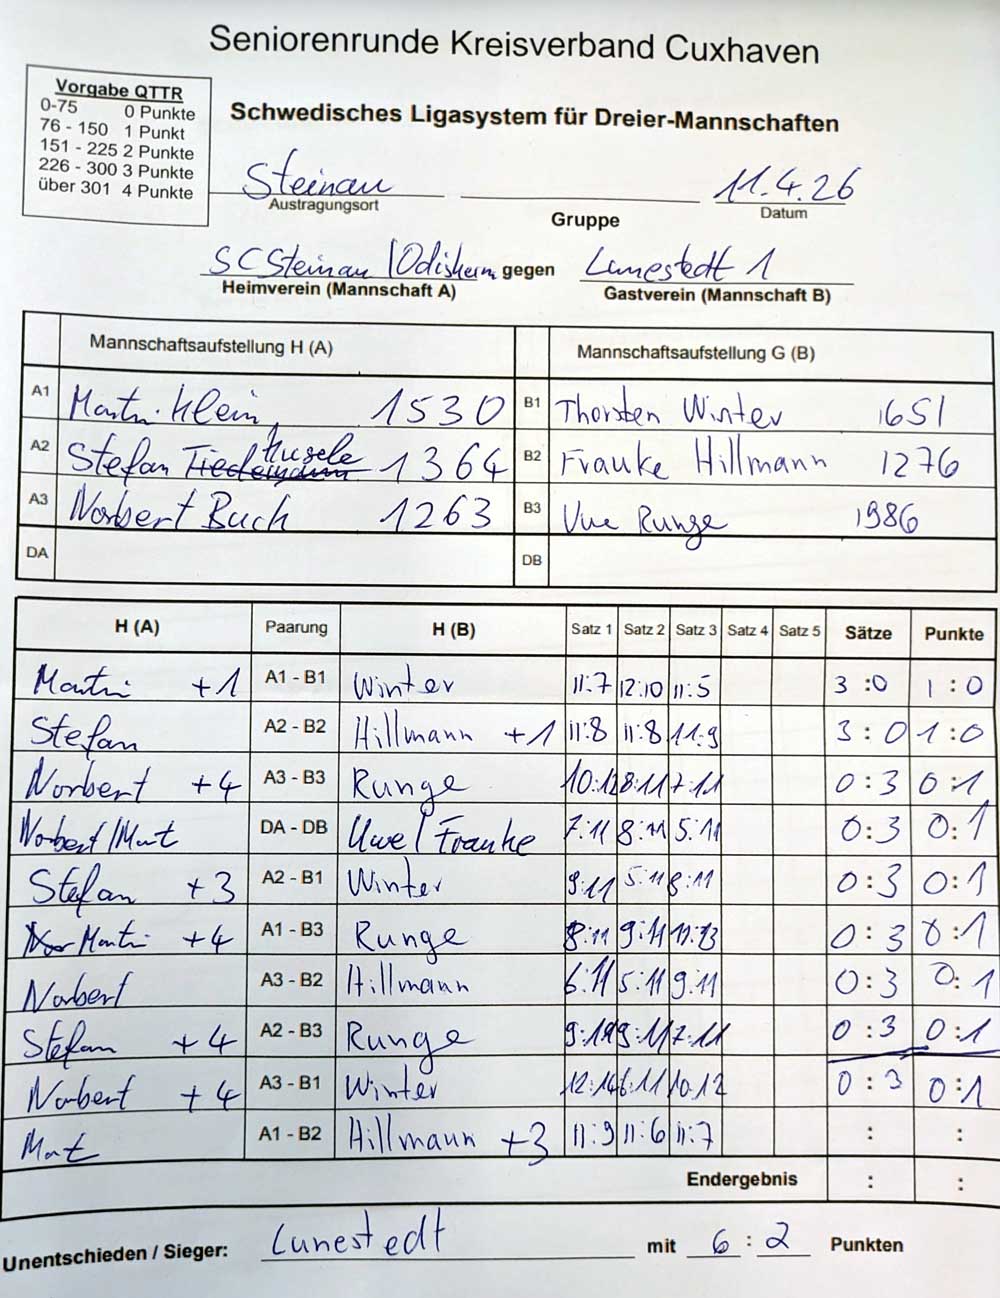 Seniorenrunde Kreisverband Cuxhaven
Vorgabe QTTR
0-75 0 Punkte
76 - 150 1 Punkt
151 - 225 2 Punkte
226 - 300 3 Punkte
über 301 4 Punkte
Schwedisches Ligasystem für Dreier-Mannschaften
Steinau 11.4.26
Austragungsort Gruppe Datum
SC Steinau / Odisheim gegen Lunestedt 1
Heimverein (Mannschaft A) Gastverein (Mannschaft B)
Mannschaftsaufstellung H (A) Mannschaftsaufstellung G (B)
A1 Martin Klein 1530 B1 Thorsten Winter 1651
A2 Stefan Tiedemann 1364 B2 Frauke Hillmann 1276
A3 Norbert Buch 1263 B3 Uwe Runge 1986
DA DB
H (A) Paarung H (B) Satz 1 Satz 2 Satz 3 Satz 4 Satz 5 Sätze Punkte
Martin +1 A1 - B1 Winter 11:7 12:10 11:5 3:0 1:0
Stefan A2 - B2 Hillmann +1 11:8 11:8 11:9 3:0 1:0
Norbert +4 A3 - B3 Runge 10:12 8:11 7:11 0:3 0:1
Norbert/Mat DA - DB Uwe/Frauke 7:11 8:11 5:11 0:3 0:1
Stefan +3 A2 - B1 Winter 9:11 5:11 8:11 0:3 0:1
Martin +4 A1 - B3 Runge 8:11 9:11 11:13 0:3 0:1
Norbert A3 - B2 Hillmann 6:11 5:11 9:11 0:3 0:1
Stefan +4 A2 - B3 Runge 9:11 9:11 7:11 0:3 0:1
Norbert +4 A3 - B1 Winter 12:14 6:11 10:12 0:3 0:1
Mat A1 - B2 Hillmann +3 11:9 11:6 11:7 : :
Endergebnis : :
Unentschieden / Sieger: Lunestedt mit 6:2 Punkten